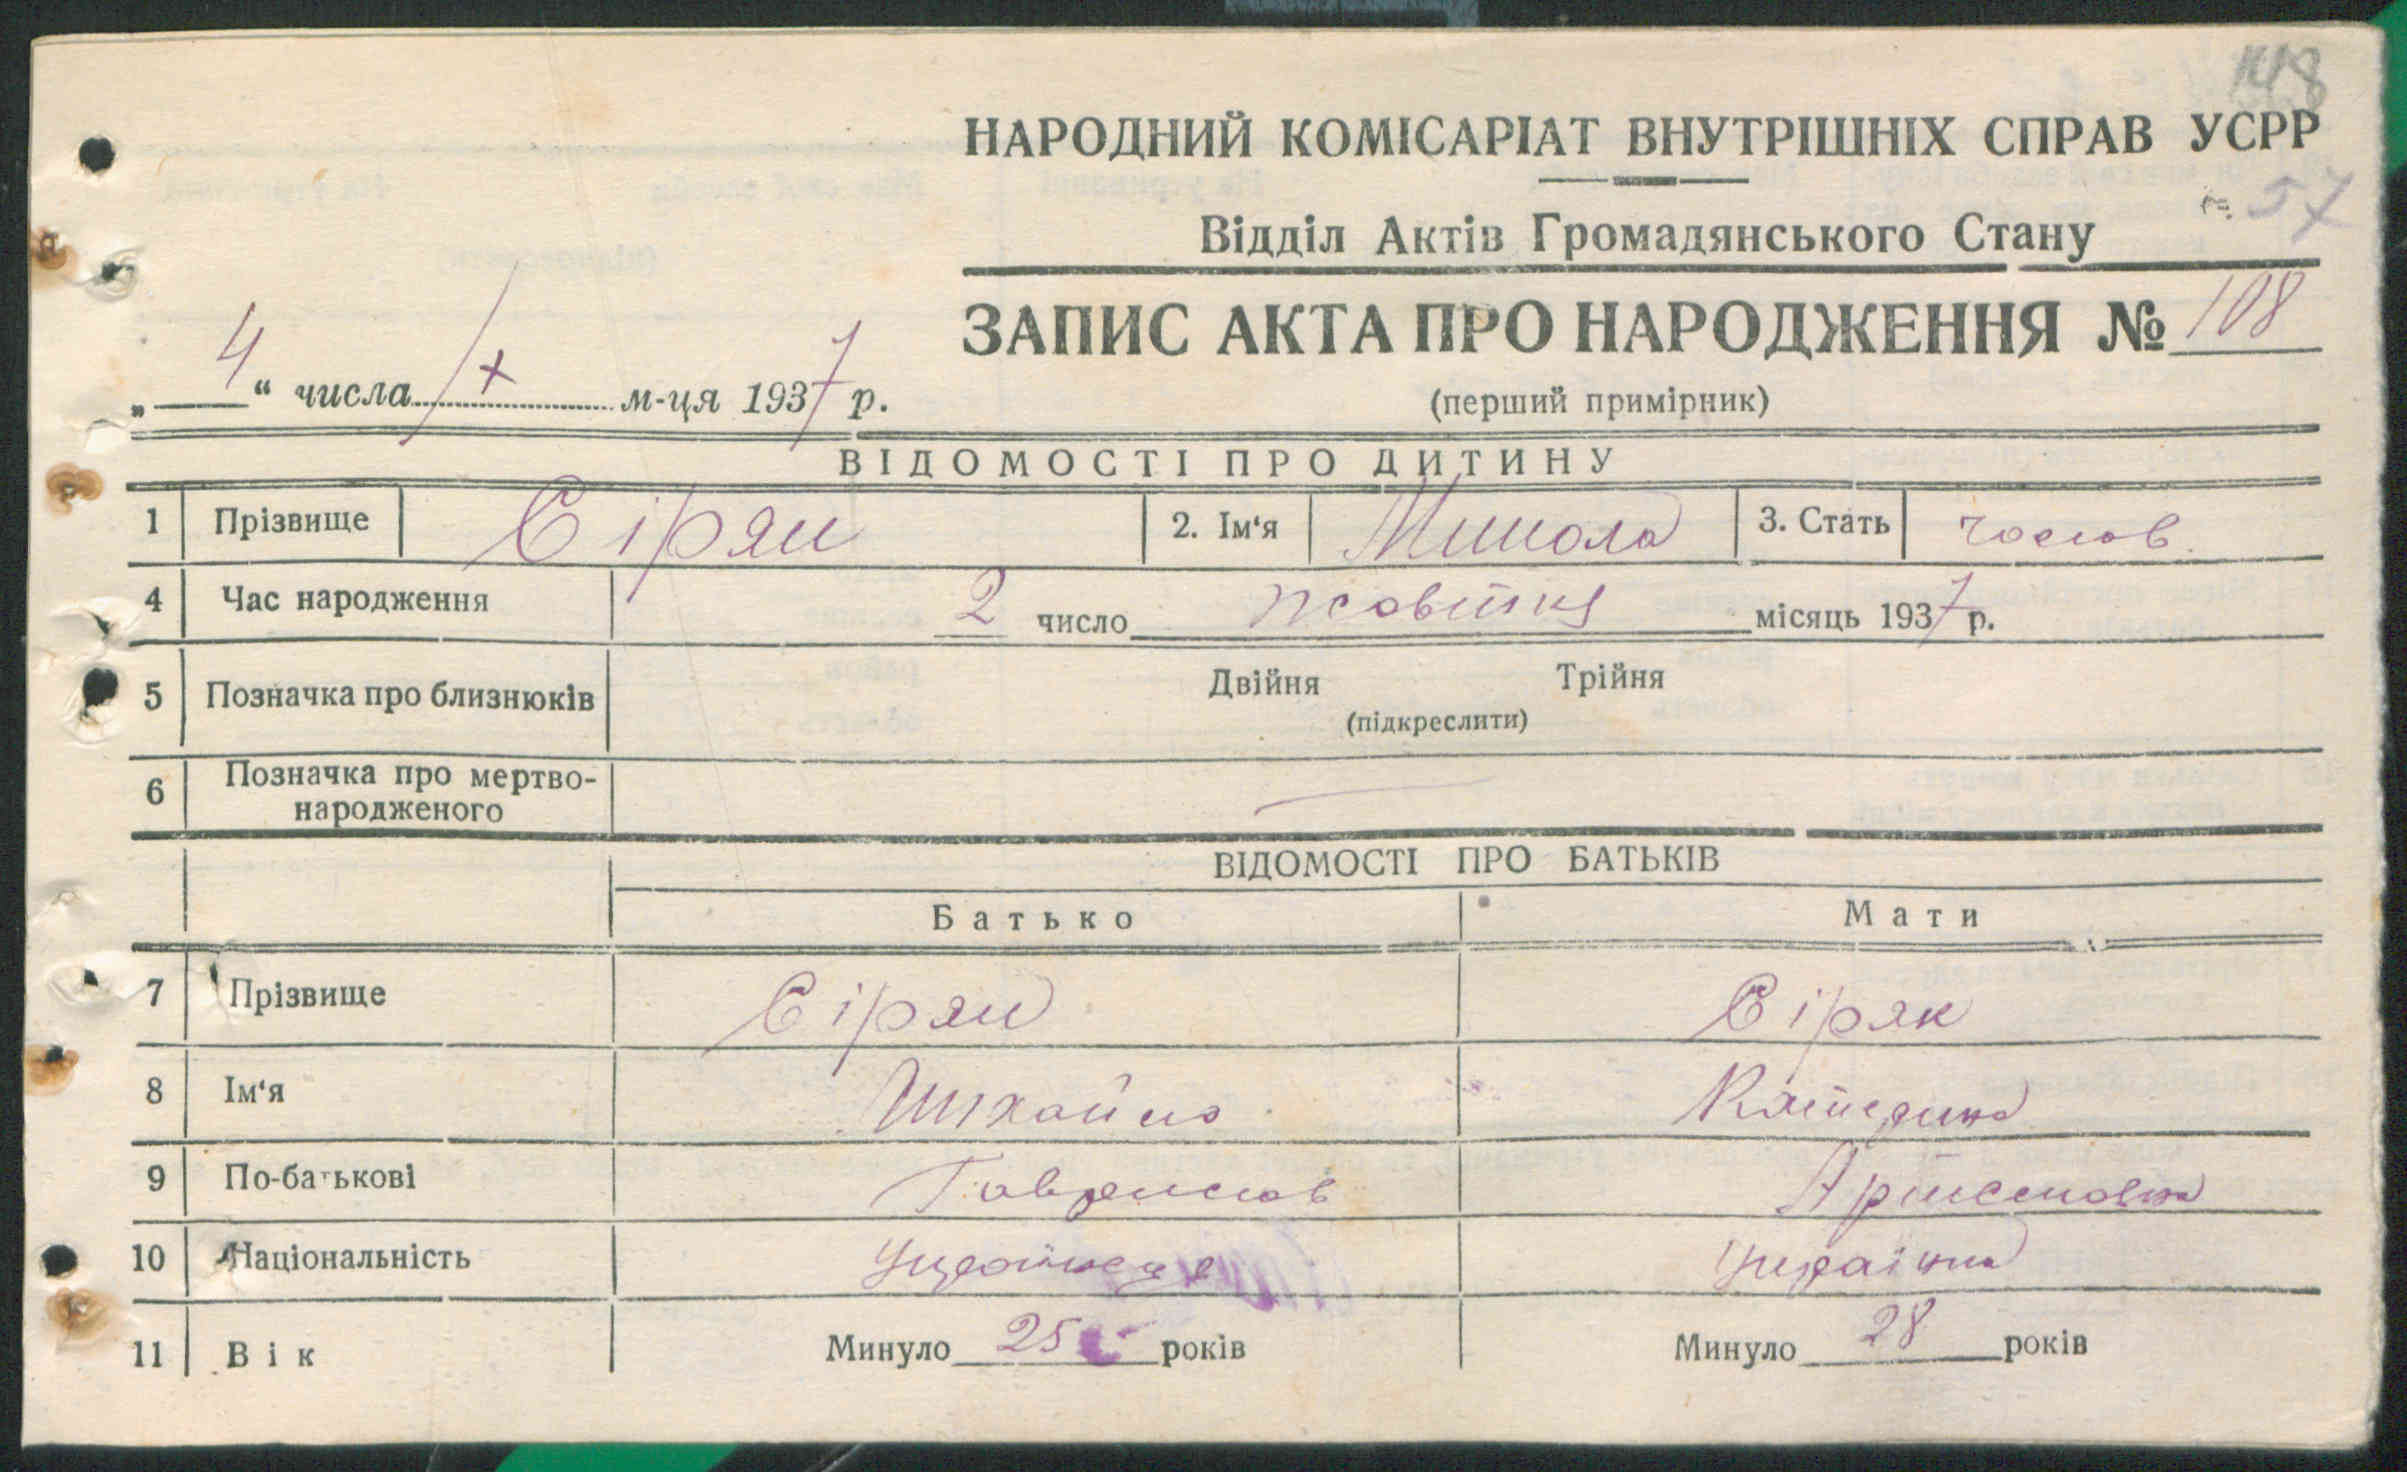 148
НАРОДНИЙ КОМІСАРІАТ ВНУТРІШНІХ СПРАВ УСРР
57
Відділ Актів Громадянського Стану
ЗАПИС АКТА ПРО НАРОДЖЕННЯ № 108
„ 4 “ числа X м-ця 1937 р.
(перший примірник)
ВІДОМОСТІ ПРО ДИТИНУ
1 Прізвище Сіряк 2. Ім‘я Микола 3. Стать чолов
4 Час народження 2 число жовтня місяць 1937 р.
5 Позначка про близнюків Двійня Трійня
(підкреслити)
6 Позначка про мертво-
народженого
ВІДОМОСТІ ПРО БАТЬКІВ
Батько Мати
7 Прізвище Сіряк Сіряк
8 Ім‘я Михайло Катерина
9 По-батькові Гаврилов Артемовна
10 Національність Українець Українка
11 Вік Минуло 25 років Минуло 28 років